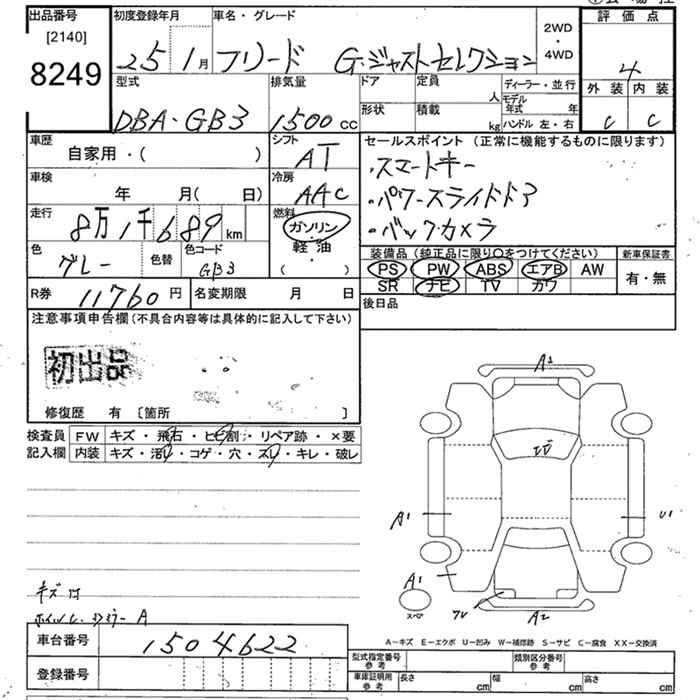 出品番号
[2140]
8249
初度登録年月
25 1月
車名・グレード
フリード G・ジャストセレクション
2WD
・
4WD
評価点
4
外装 内装
C C
型式
DBA-GB3
排気量
1500 cc
ドア
定員
人
形状
積載
kg
ディーラー・並行
モデル年式 年
ハンドル 左・右
車歴
自家用・( )
シフト
AT
セールスポイント (正常に機能するものに限ります)
・スマートキー
・パワースライドドア
・バックカメラ
車検
年 月( 日)
冷房
AAC
走行
8万1千689 km
燃料
ガソリン
軽・油
( ・ )
色
グレー
色替
色コード
GB3
装備品 (純正品に限り○をつけてください)
PS PW ABS エアB AW
SR ナビ TV カワ
新車保証書
有・無
R券
11760 円
名変期限
月 日
後日品
注意事項申告欄 (不具合内容等は具体的に記入して下さい)
初出品
修復歴 有 〔箇所 〕
検査員
記入欄
FW キズ・飛石・ヒビ割・リペア跡・×要
内装 キズ・汚れ・コゲ・穴・スレ・キレ・破レ
A1
A1
U1
A1
スペア
A2
キズ
A
A-キズ E-エクボ U-凹み W-補修跡 S-サビ C-腐食 XX-交換済
車台番号
1504622
登録番号
型式指定番号
参考
類別区分番号
参考
車庫証明用
参考
長さ cm
幅 cm
高さ cm